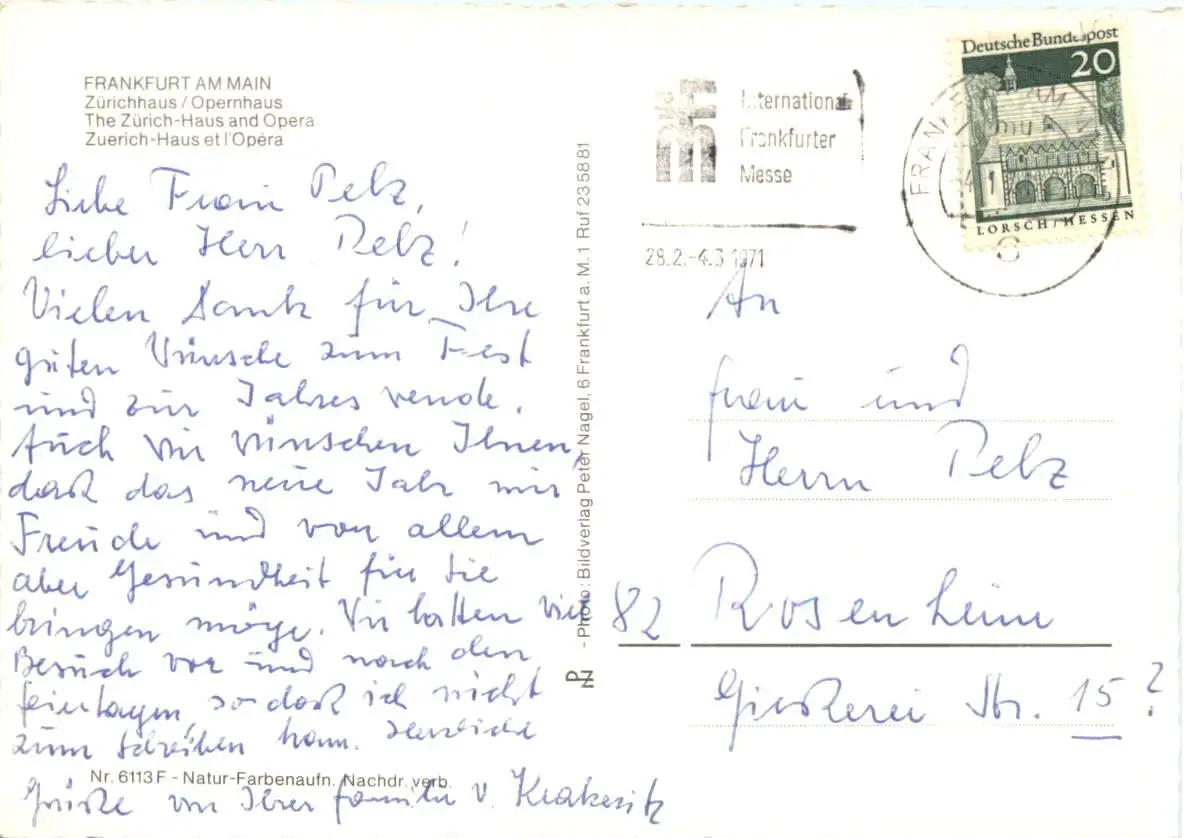 FRANKFURT AM MAIN
Zürichhaus / Opernhaus
The Zürich-Haus and Opera
Zuerich-Haus et l'Opéra
Liebe Frau Pelz,
lieber Herr Pelz!
Vielen Dank für Ihre
guten Wünsche zum Fest
und zur Jahreswende.
Auch wir wünschen Ihnen,
daß das neue Jahr nur
Freude und vor allem
aber Gesundheit für Sie
bringen möge. Wir hatten viel
Besuch vor und nach den
Feiertagen, so daß ich nicht
zum Schreiben kam. Herzliche
Grüße von Ihrer Familie v.
Nr. 6113 F - Natur-Farbenaufn. Nachdr. verb.
- Photo: Bildverlag Peter Nagel, 6 Frankfurt a. M. 1 Ruf 23 58 81
PN
Internationale
Frankfurter
Messe
28.2.-4.3.1971
Deutsche Bundespost
20
LORSCH/HESSEN
FRANKFURT AM MAIN
An
Frau und
Herrn Pelz
82 Rosenheim
Gießerei Str. 15 ?